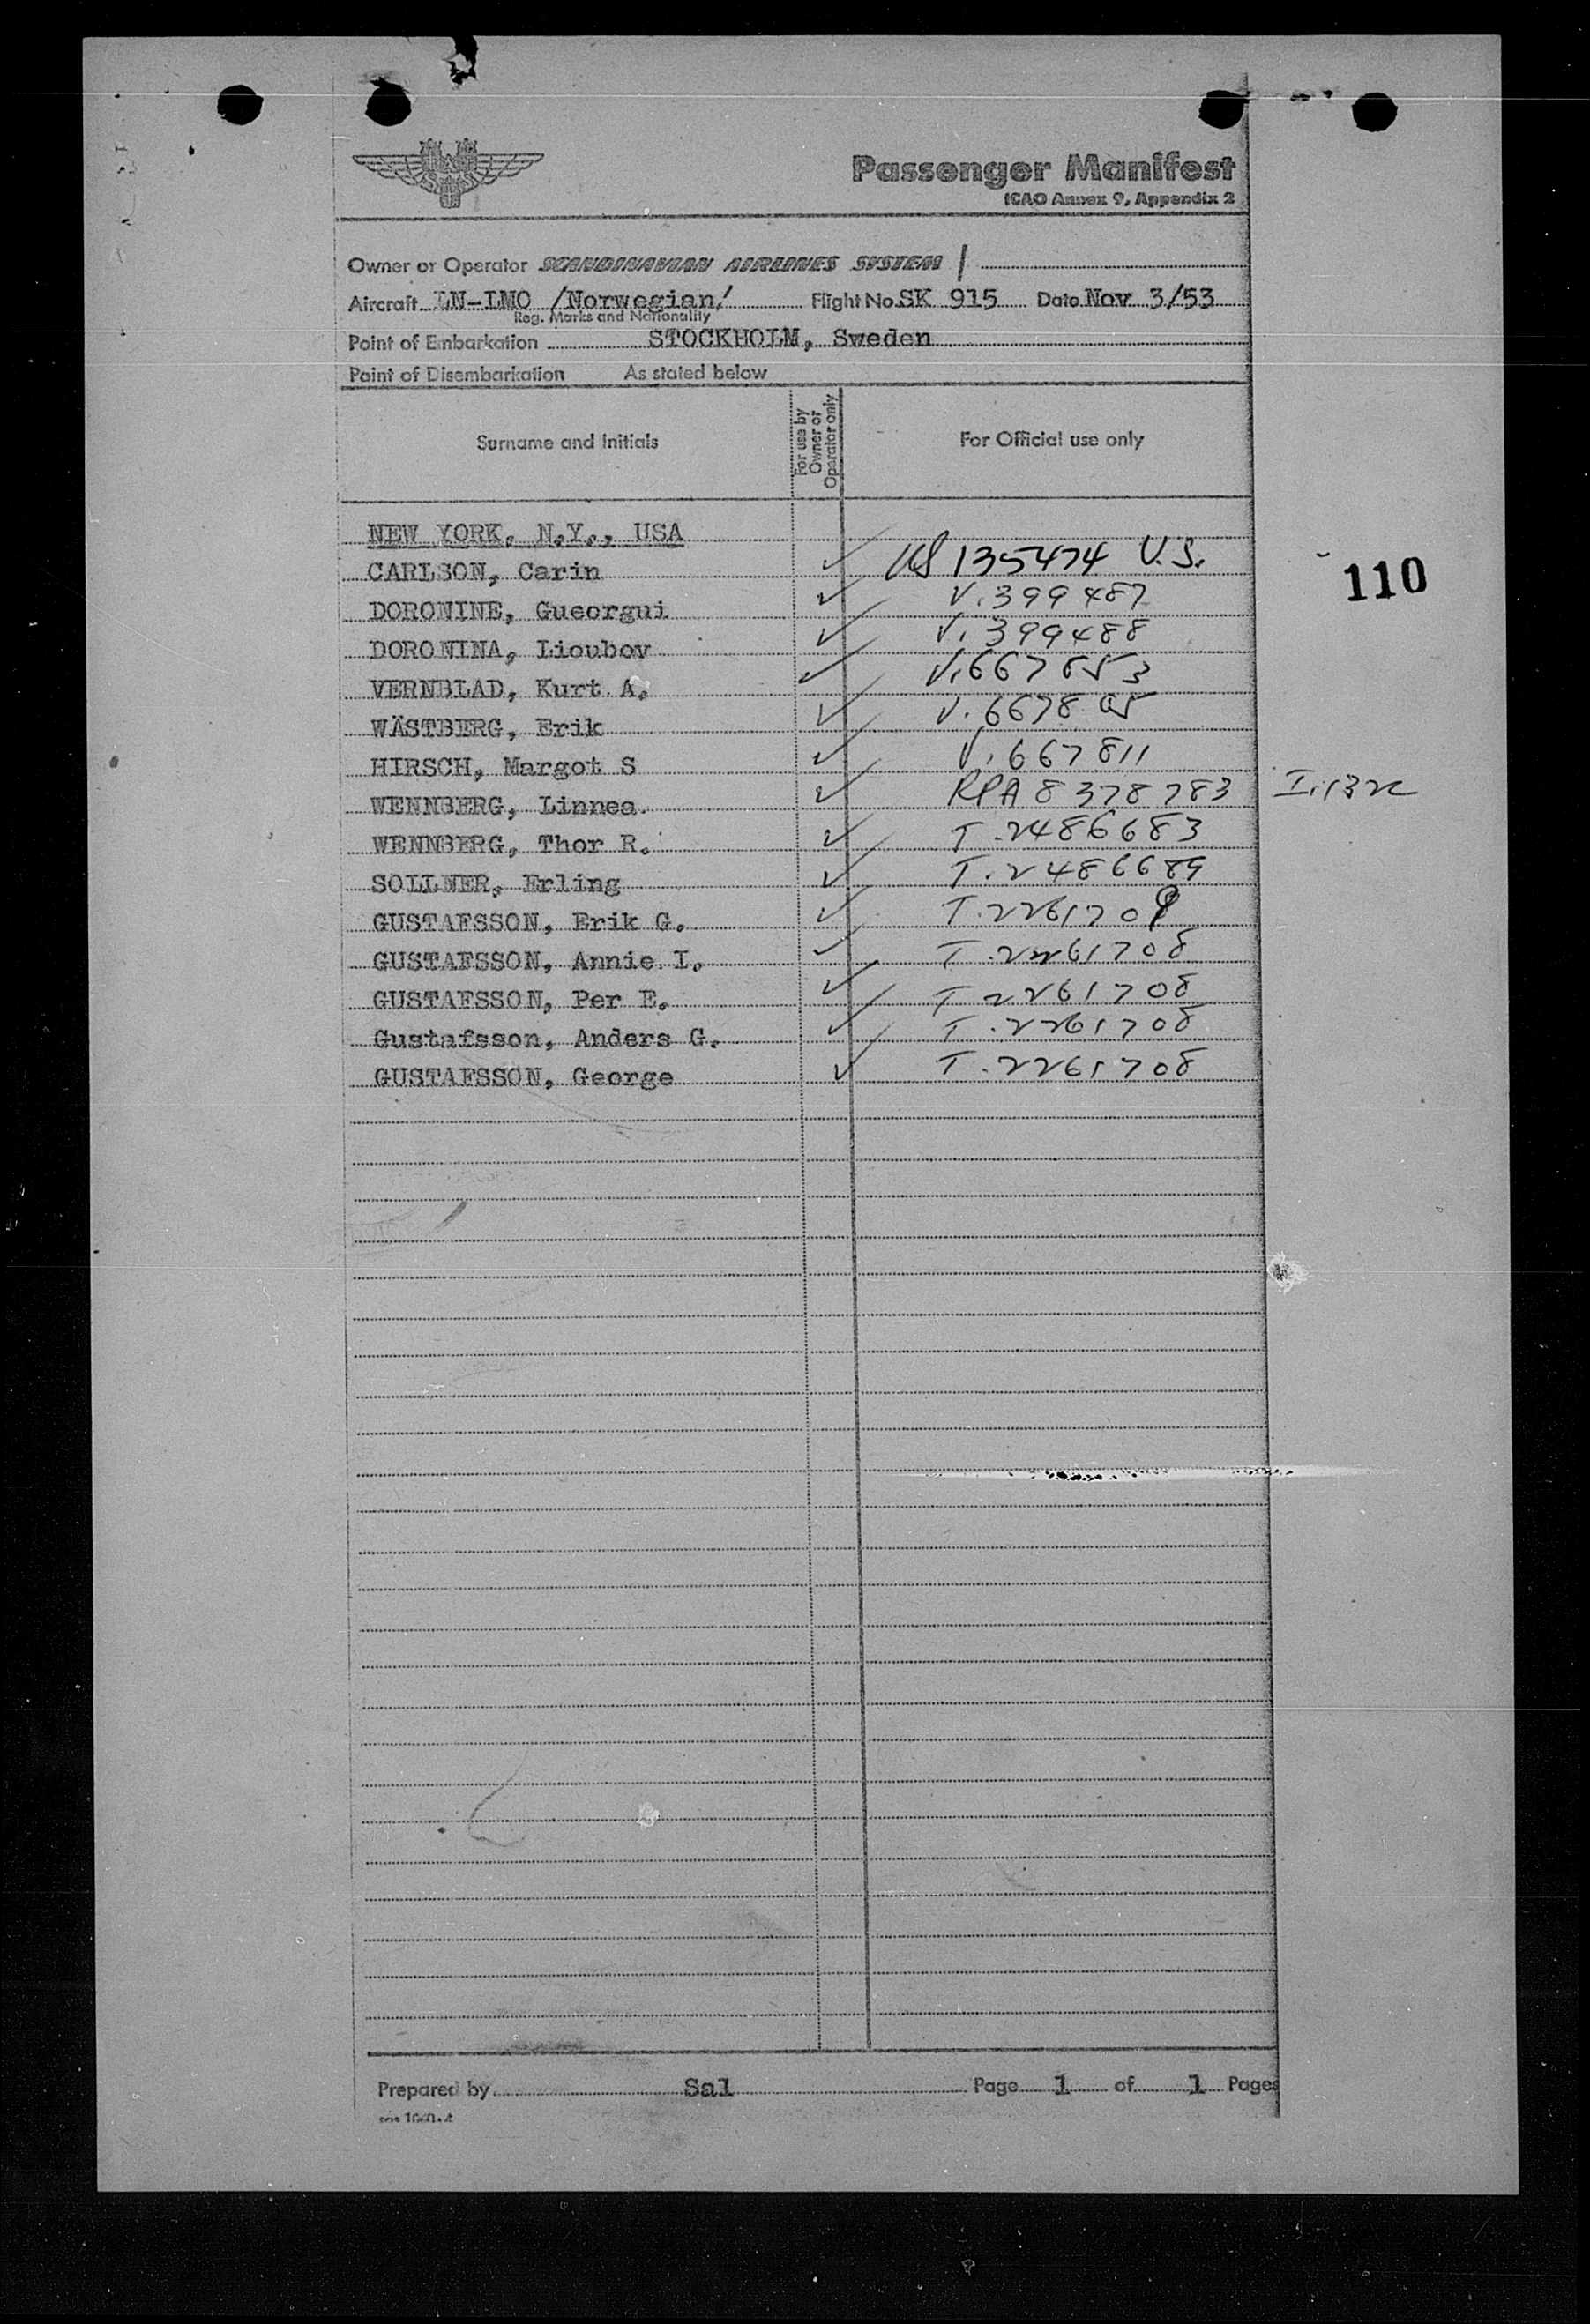 Passenger Manifest
ICAO Annex 9, Appendix 2
Owner or Operator SCANDINAVIAN AIRLINES SYSTEM
Aircraft LN-LMO /Norwegian/ Flight No. SK 915 Date Nov 3/53
Reg. Marks and Nationality
Point of Embarkation STOCKHOLM, Sweden
Point of Disembarkation As stated below
Surname and Initials For use by Owner or Operator only For Official use only
NEW YORK, N.Y., USA
CARLSON, Carin 135474 U.S.
110
DORONINE, Gueorgui V.399487
DORONINA, Lioubov V.399488
VERNBLAD, Kurt A.
WÄSTBERG, Erik
HIRSCH, Margot S V.667811
WENNBERG, Linnea. RPA 8378783
WENNBERG, Thor R. T.2486683
SOLLNER, Erling T.2486689
GUSTAFSSON, Erik G.
GUSTAFSSON, Annie I. T.2261708
GUSTAFSSON, Per E. T 2261708
Gustafsson, Anders G. T.2261708
GUSTAFSSON, George T.2261708
Prepared by Sal Page 1 of 1 Pages